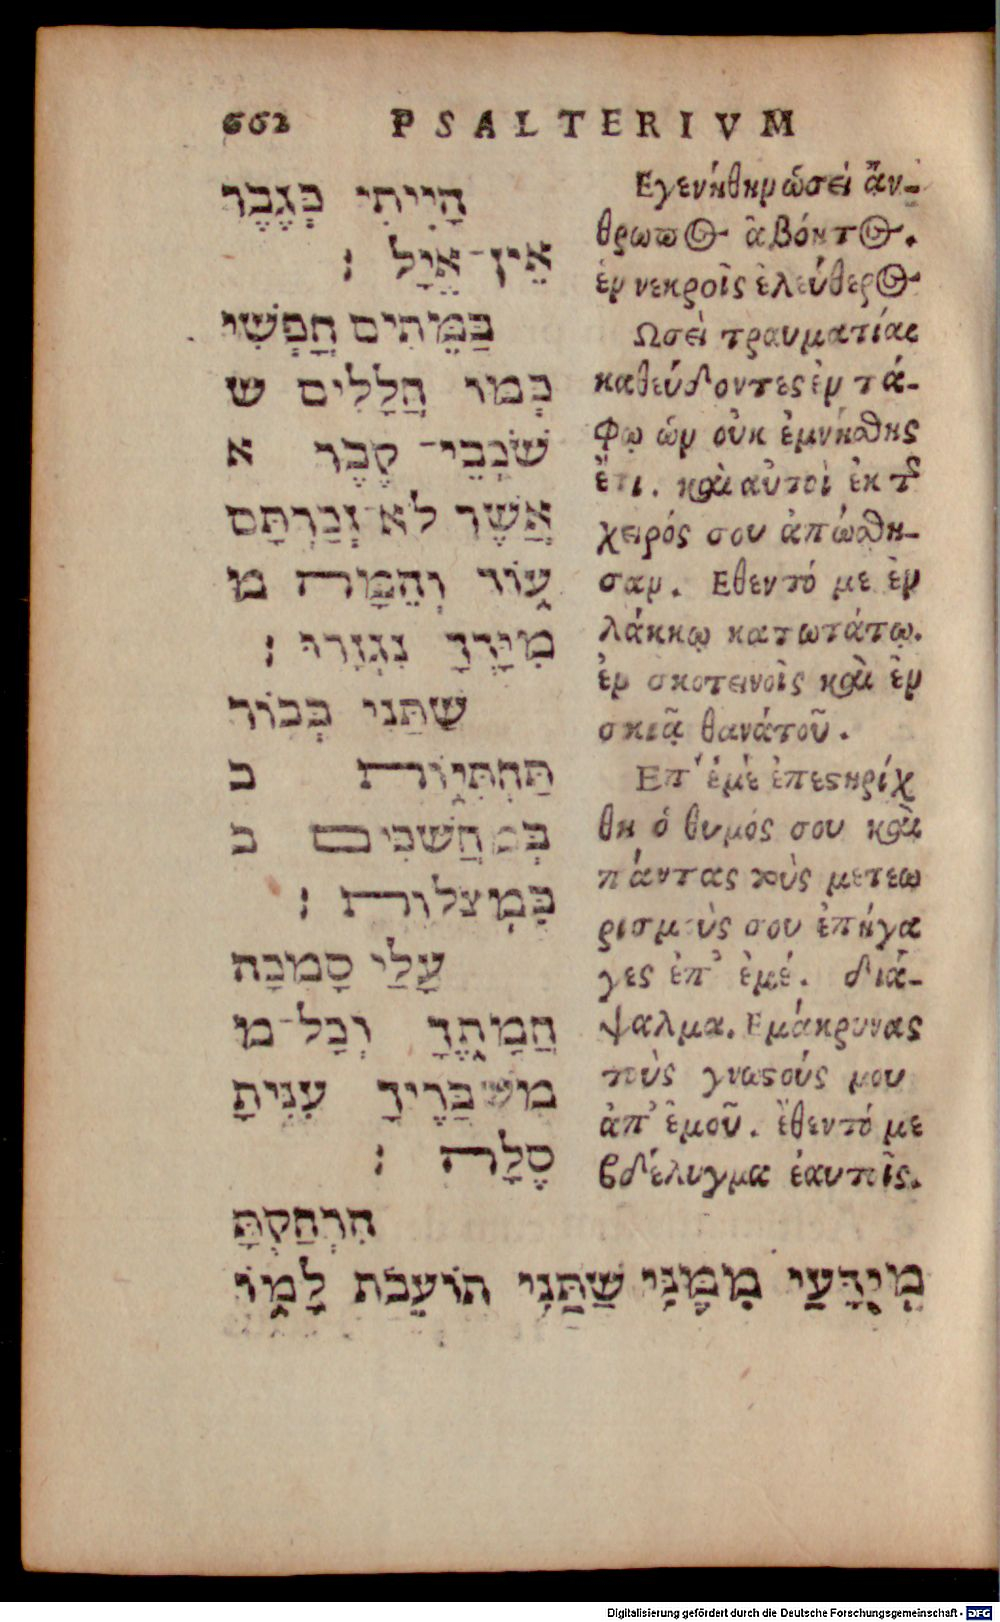 662 PSALTERIVM
הָיִיתִי כְּגֶבֶר
אֵין־אֱיָל :
בַּמֵּתִים חָפְשִׁי
כְּמוּ חֲלָלִים ש
שֹׁכְבֵי־ קֶבֶר א
אֲשֶׁר לֹא־זְכַרְתָּם
עוֹד וְהֵמָּה מ
מִיָּדְךָ נִגְזָרוּ :
שַׁתַּנִי בְּבוֹר
תַּחְתִּיּוֹת ב
בְּמַחֲשַׁכִּים ב
בִּמְצֹלוֹת :
עָלַי סָמְכָה
חֲמָתֶךָ וְכָל־מ
מִשְׁבָּרֶיךָ עִנִּיתָ
סֶּלָה :
הִרְחַקְתָּ
מְיֻדָּעַי מִמֶּנִּי שַׁתַּנִי תוֹעֵבֹת לָמוֹ
Εγενήθην ὡσεί ἄν-
θρωπος ἀβόητος.
ἐν νεκροῖς ἐλεύθερος
Ωσεὶ τραυματίαι
καθεύδοντες ἐν τά-
φῳ ὧν οὐκ ἐμνήσθης
ἔτι. καὶ αὐτοὶ ἐκ τῆς
χειρός σου ἀπώσθη-
σαν. Εθεντό με ἐν
λάκκῳ κατωτάτῳ.
ἐν σκοτεινοῖς καὶ ἐν
σκιᾷ θανάτοῦ.
Επ' ἐμὲ ἐπεστηρίχ
θη ὁ θυμός σου καὶ
πάντας τοὺς μετεω
ρισμοὺς σου ἐπήγα
γες ἐπ' ἐμέ. διά-
ψαλμα. Εμάκρυνας
τοὺς γνωστούς μου
ἀπ' ἐμοῦ. ἔθεντό με
βδέλυγμα ἑαυτοῖς.
Digitalisierung gefördert durch die Deutsche Forschungsgemeinschaft - DFG